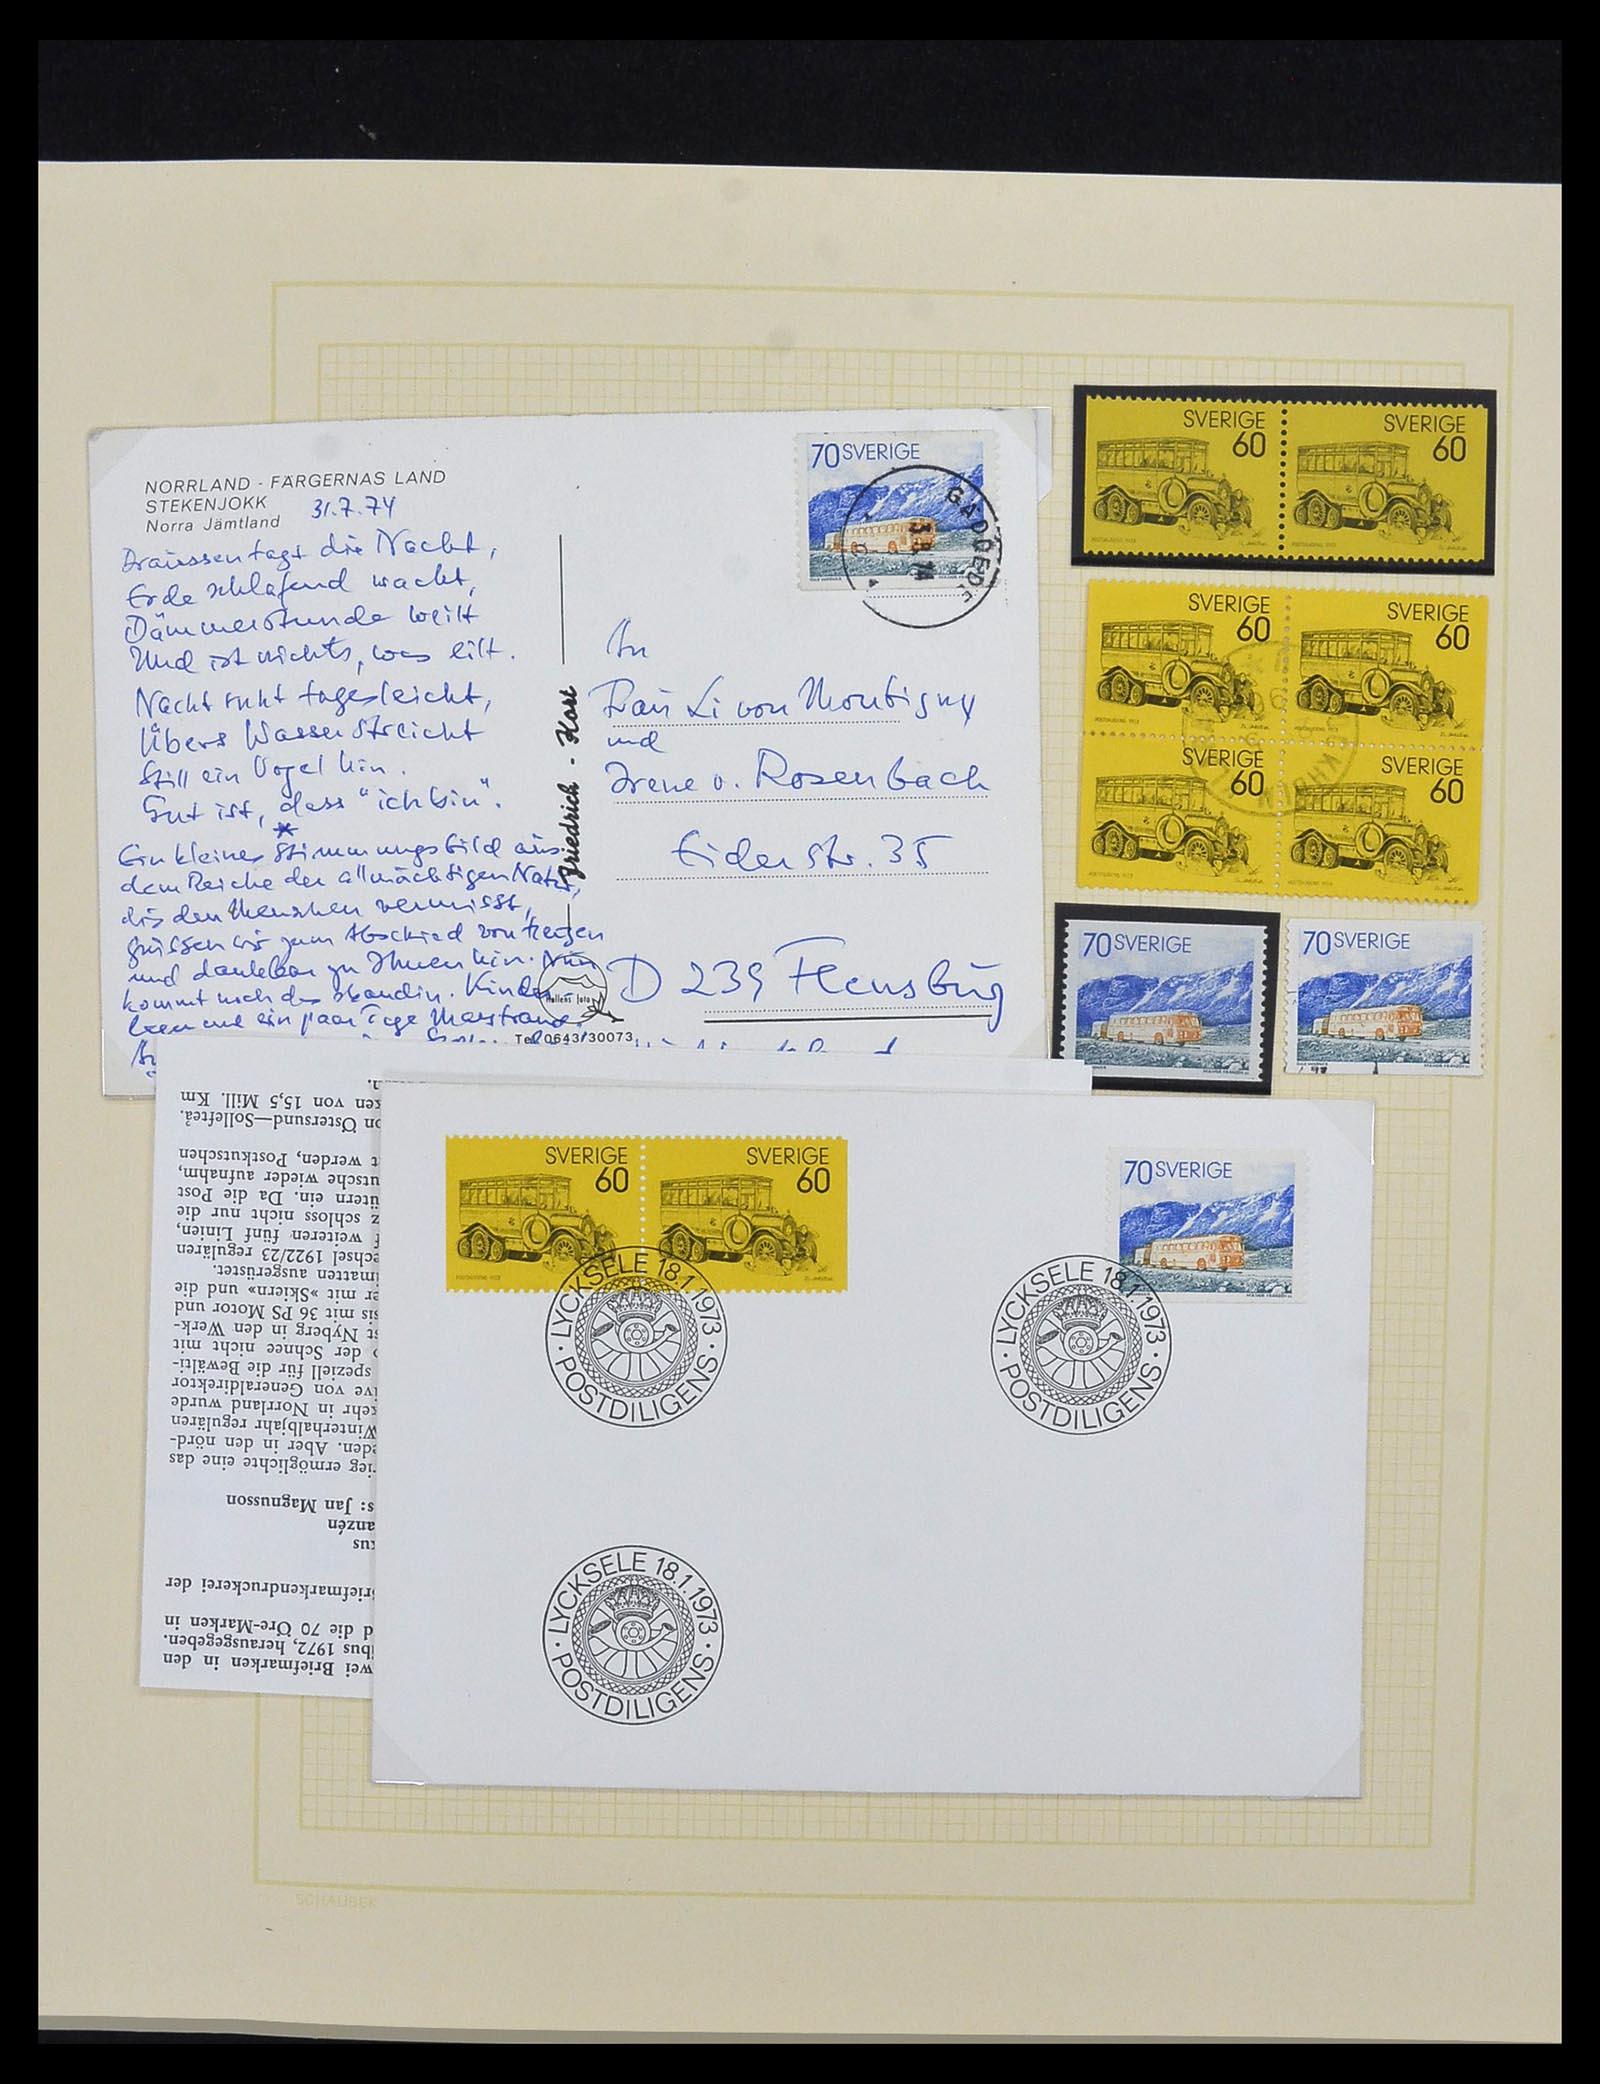 NORRLAND - FÄRGERNAS LAND
STEKENJOKK
Norra Jämtland
31.7.74
Draussen tagt die Nacht,
Erde schlafend wacht,
Dämmerstunde weilt
Und ist nichts, was eilt.
Nacht ruht tagesleicht,
Übers Wasser streicht
Still ein Vogel hin.
Gut ist, dass "ich bin".
*
Ein kleines Stimmungsbild aus
dem Reiche der allmächtigen Natur,
die den Menschen vermisst,
grüssen wir zum Abschied von
und dankbar zu Ihnen hin. Nun
kommt noch das skandin. Kinder
und ein paar Tage Marstrand.
Friedrich - Kort
Hallens foto
Tel 0643/30073
70 SVERIGE
GÄDDEDE
An
Frau Li von Montigny
und
Irene v. Rosenbach
Eiderstr. 35
D 239 Flensburg
SVERIGE
60
SVERIGE
60
POSTDILIGENS 1923
SVERIGE
60
SVERIGE
60
SVERIGE
60
SVERIGE
60
POSTDILIGENS 1923
70 SVERIGE
70 SVERIGE
n.
ken von 15,5 Mill. Km
on Östersund—Sollefteå.
t werden, Postkutschen
utsche wieder aufnahm,
ütern ein. Da die Post
z schloss nicht nur die
f weiteren fünf Linien,
echsel 1922/23 regulären
imatten ausgerüstet.
er mit »Skiern« und die
sis mit 36 PS Motor und
st Nyberg in den Werk-
o der Schnee nicht mit
speziell für die Bewälti-
ive von Generaldirektor
kehr in Norrland wurde
Winterhalbjahr regulären
eden. Aber in den nörd-
rieg ermöglichte eine das
s: Jan Magnusson
anzén
kus
Briefmarkendruckerei der
d die 70 Öre-Marken in
ibus 1972, herausgegeben.
wei Briefmarken in den
SVERIGE
60
SVERIGE
60
POSTDILIGENS 1923
70 SVERIGE
LYCKSELE 18.1.1973
· POSTDILIGENS ·
LYCKSELE 18.1.1973
· POSTDILIGENS ·
LYCKSELE 18.1.1973
· POSTDILIGENS ·
SCHAUBEK